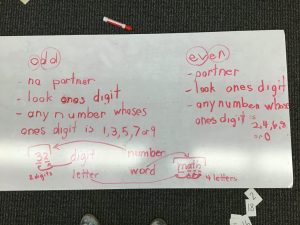 odd
- no partner
- look ones digit
- any number whoses
ones digit is 1,3,5,7 or 9
even
- partner
- look ones digit
- any number whose
ones digit =
2,4,6,8
or 0
32 digit number
2 digits letter word math 4 letters